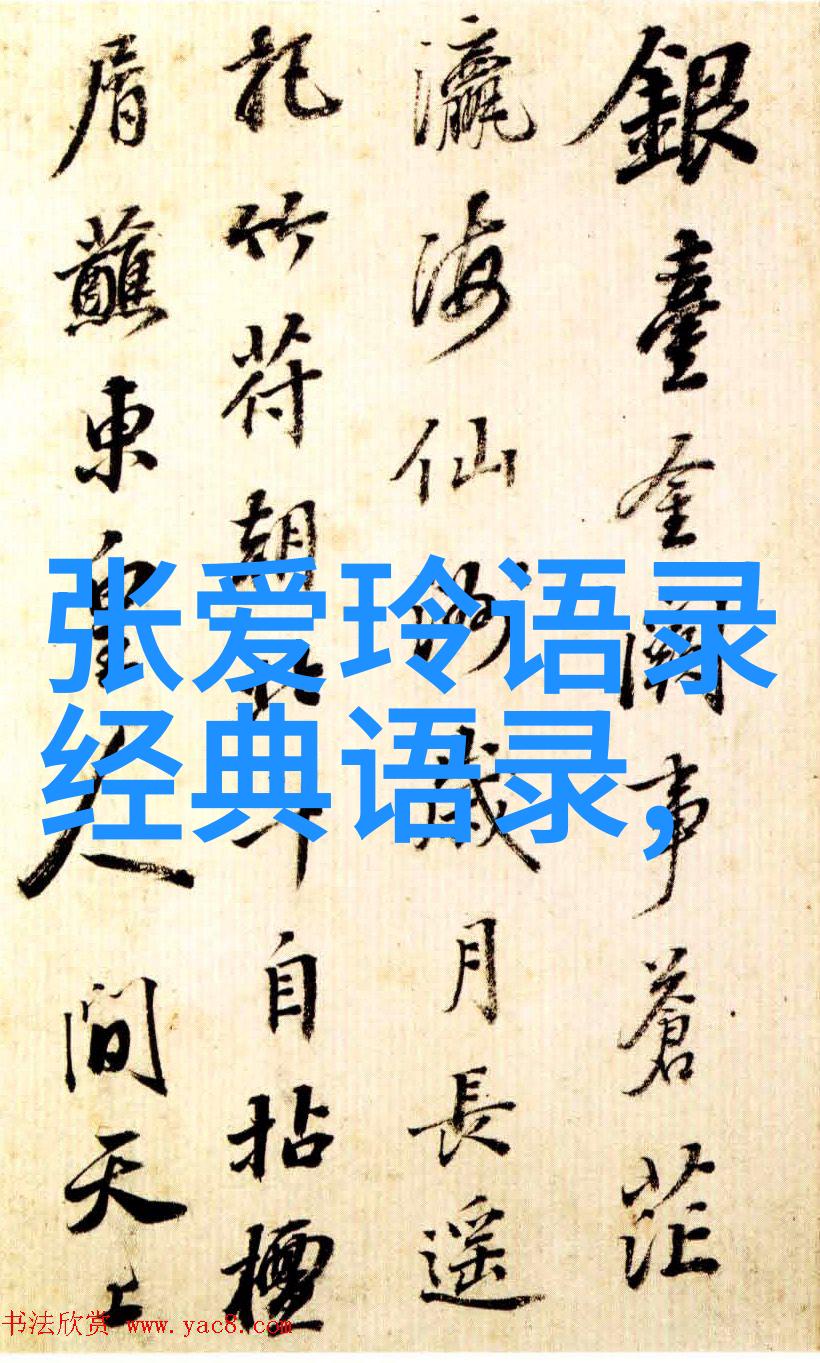 銀臺金闕事蒼茫
瀛海仙洲歲月長遥
記竹符朝北斗自拈檀
屑蘸東皇人間天上
张爱玲语录
经典语录,
书法欣赏 www.yac8.com